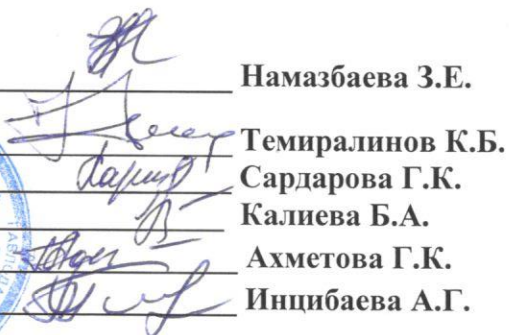 Намазбаева З.Е.
Темиралинов К.Б.
Сардарова Г.К.
Калиева Б.А.
Ахметова Г.К.
Инцибаева А.Г.